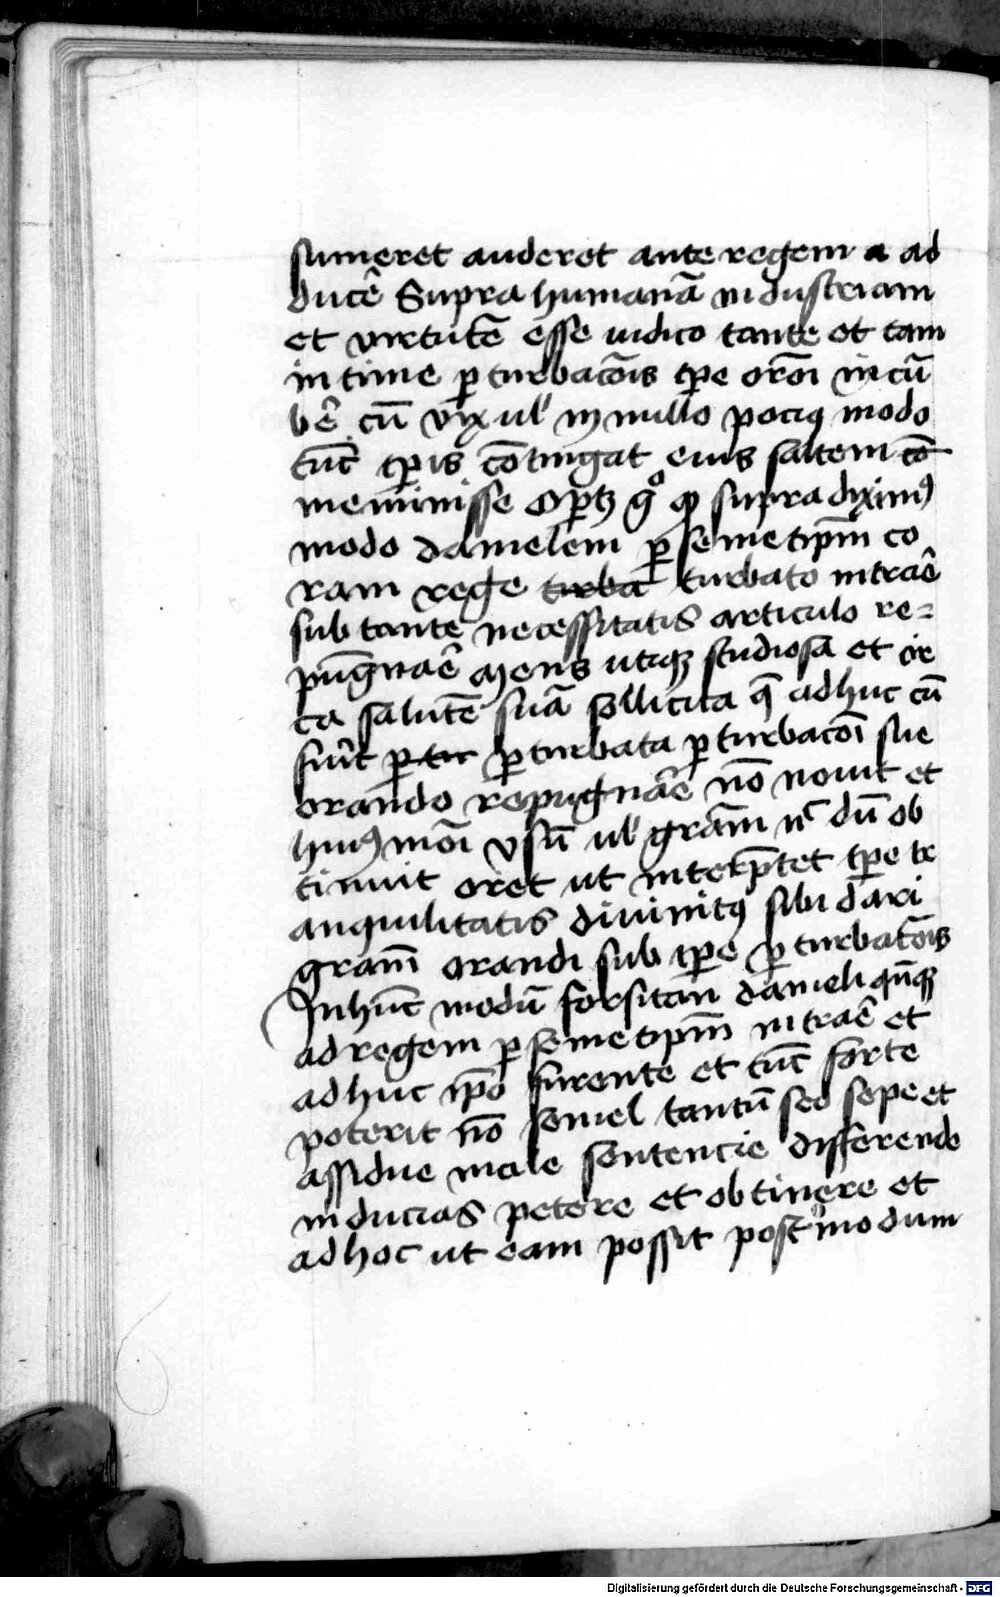 sumeret auderet ante regem a ad
ducē Supra humanā industriam
et virtutē esse iudico tante et tam
intime ꝑturbacōis tꝑe orōi incū
bē cū vix ul' in nullo pociꝰ modo
tūc tꝑis cōtingat eius saltem cō
meminisse Oꝑtꝫ gͦ ꝙ supra diximꝰ
modo danielem ꝑ semetip̄m co
ram rege turba turbato intraē
sub tante necessitatis articulo re=
pūgnaē Mens utiqꝫ studiosa et cir
ca salutē suā sollicita q̄ adhuc cū
fuīt ꝑtur ꝑturbata ꝑturbacōi sue
orando repugnāe nō nouit et
huiꝰmōi vsū ul' grām nͨ dū ob
tinuit oret ut interp̄tet tꝑe tr
anquilitatis diuinitꝰ sibi dari
grām orandi sub tꝑe ꝑturbatōis
In hūc modū forsitan danieli qn̄qꝫ
ad regem ꝑ semetip̄m intraē et
adhuc ip̄o furente et tūc forte
poterit nō semel tantū sed sepe et
assidue male sentencie differende
inducias petere et obtinere et
ad hoc ut eam possit postmodum
Digitalisierung gefördert durch die Deutsche Forschungsgemeinschaft - DFG